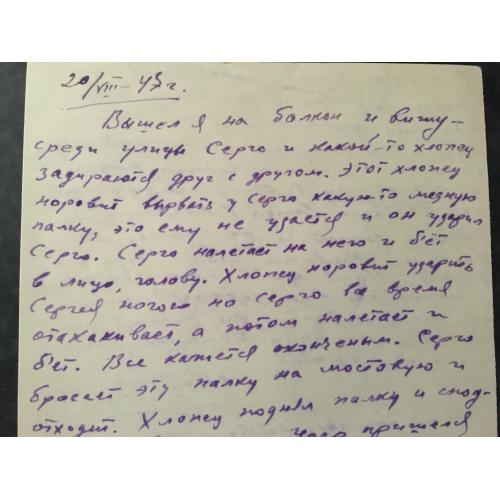 20/VIII–43 г.
Вышел я на балкон и вижу –
среди улицы Серго и какой-то хлопец
задираются друг с другом. Этот хлопец
норовит вырвать у Серго какую-то медную
палку, это ему не удается и он ударил
Серго. Серго налетает на него и бьёт
в лицо, голову. Хлопец норовит ударить
Сергея ногой но Серго во время
отскакивает, а потом налетает и
бьет. Все кажется оконченым. Серго
бросает эту палку на мостовую и
отходит. Хлопец поднял палку и
пришелся